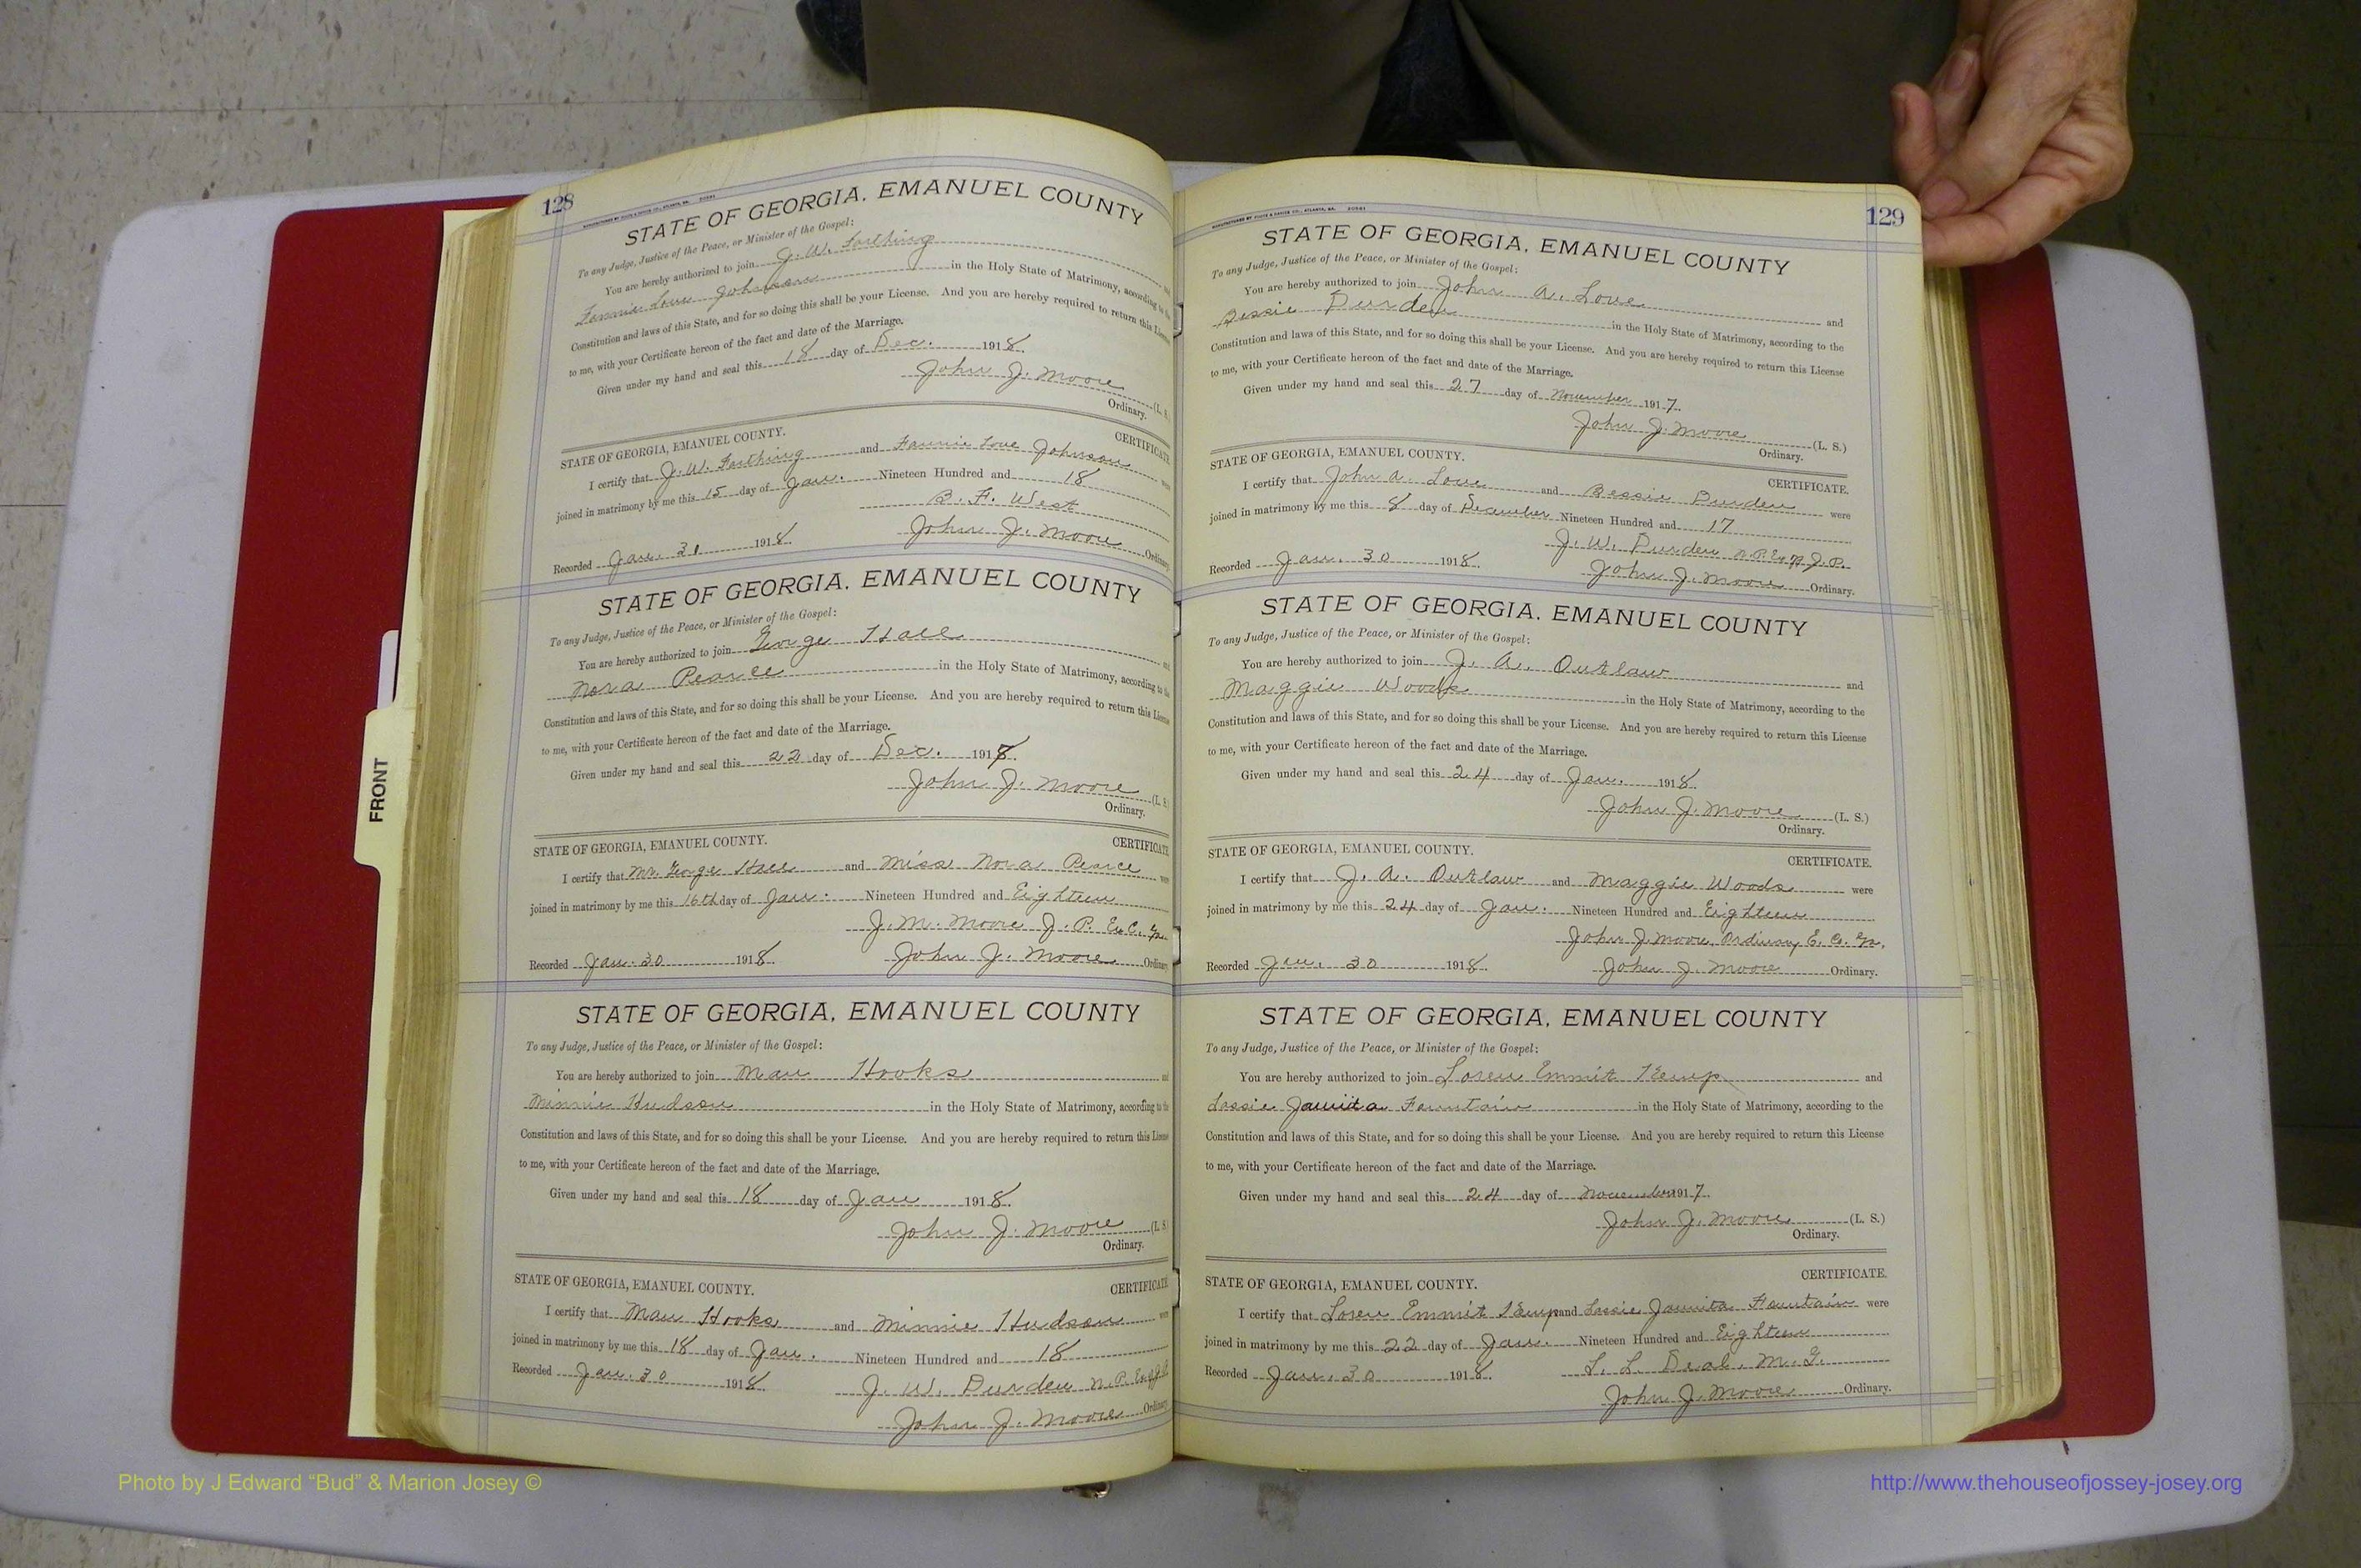 128
STATE OF GEORGIA, EMANUEL COUNTY
To any Judge, Justice of the Peace, or Minister of the Gospel:
You are hereby authorized to join J. W. Farthing and
Fannie Love Johnson in the Holy State of Matrimony, according to the
Constitution and laws of this State, and for so doing this shall be your License. And you are hereby required to return this License
to me, with your Certificate hereon of the fact and date of the Marriage.
Given under my hand and seal this 18 day of Dec. 1918.
John J. Moore (L. S.
Ordinary.
STATE OF GEORGIA, EMANUEL COUNTY. CERTIFICATE
I certify that J. W. Farthing and Fannie Love Johnson were
joined in matrimony by me this 15 day of Jan. Nineteen Hundred and 18
B. F. West
Recorded Jan. 30 1918. John J. Moore Ordinary
STATE OF GEORGIA, EMANUEL COUNTY
To any Judge, Justice of the Peace, or Minister of the Gospel:
You are hereby authorized to join George Hall and
Nora Pearce in the Holy State of Matrimony, according to the
Constitution and laws of this State, and for so doing this shall be your License. And you are hereby required to return this License
to me, with your Certificate hereon of the fact and date of the Marriage.
Given under my hand and seal this 22 day of Dec. 1917.
John J. Moore (L. S.
Ordinary.
STATE OF GEORGIA, EMANUEL COUNTY. CERTIFICATE
I certify that Mr. George Hall and Miss Nora Pearce were
joined in matrimony by me this 16th day of Jan. Nineteen Hundred and Eighteen
J. M. Moore J. P. E. C. Ga.
Recorded Jan. 30 1918. John J. Moore Ordinary
STATE OF GEORGIA, EMANUEL COUNTY
To any Judge, Justice of the Peace, or Minister of the Gospel:
You are hereby authorized to join Man Hooks and
Minnie Hudson in the Holy State of Matrimony, according to the
Constitution and laws of this State, and for so doing this shall be your License. And you are hereby required to return this License
to me, with your Certificate hereon of the fact and date of the Marriage.
Given under my hand and seal this 18 day of Jan 1918.
John J. Moore (L. S
Ordinary.
STATE OF GEORGIA, EMANUEL COUNTY. CERTIFICATE
I certify that Man Hooks and Minnie Hudson were
joined in matrimony by me this 18 day of Jan. Nineteen Hundred and 18
Recorded Jan. 30 1918. J. W. Durden N. P.
John J. Moore Ordinary
129
STATE OF GEORGIA, EMANUEL COUNTY
To any Judge, Justice of the Peace, or Minister of the Gospel:
You are hereby authorized to join John A. Love and
Bessie Durden in the Holy State of Matrimony, according to the
Constitution and laws of this State, and for so doing this shall be your License. And you are hereby required to return this License
to me, with your Certificate hereon of the fact and date of the Marriage.
Given under my hand and seal this 27 day of November 1917.
John J. Moore (L. S.)
Ordinary.
STATE OF GEORGIA, EMANUEL COUNTY. CERTIFICATE.
I certify that John A. Love and Bessie Durden were
joined in matrimony by me this 8 day of December Nineteen Hundred and 17
J. W. Durden N. P. Ex off J. P.
Recorded Jan. 30 1918. John J. Moore Ordinary.
STATE OF GEORGIA, EMANUEL COUNTY
To any Judge, Justice of the Peace, or Minister of the Gospel:
You are hereby authorized to join J. A. Outlaw and
Maggie Woods in the Holy State of Matrimony, according to the
Constitution and laws of this State, and for so doing this shall be your License. And you are hereby required to return this License
to me, with your Certificate hereon of the fact and date of the Marriage.
Given under my hand and seal this 24 day of Jan. 1918.
John J. Moore (L. S.)
Ordinary.
STATE OF GEORGIA, EMANUEL COUNTY. CERTIFICATE.
I certify that J. A. Outlaw and Maggie Woods were
joined in matrimony by me this 24 day of Jan. Nineteen Hundred and Eighteen
John J. Moore, Ordinary E. C. Ga.
Recorded Jan. 30 1918. John J. Moore Ordinary.
STATE OF GEORGIA, EMANUEL COUNTY
To any Judge, Justice of the Peace, or Minister of the Gospel:
You are hereby authorized to join Loren Emmit Kemp and
Lassie Jaunita Fountain in the Holy State of Matrimony, according to the
Constitution and laws of this State, and for so doing this shall be your License. And you are hereby required to return this License
to me, with your Certificate hereon of the fact and date of the Marriage.
Given under my hand and seal this 24 day of November 1917.
John J. Moore (L. S.)
Ordinary.
STATE OF GEORGIA, EMANUEL COUNTY. CERTIFICATE.
I certify that Loren Emmit Kemp and Lassie Jaunita Fountain were
joined in matrimony by me this 22 day of Jan. Nineteen Hundred and Eighteen
Recorded Jan. 30 1918. L. L. Deal. M. G.
John J. Moore Ordinary.
FRONT
Photo by J Edward “Bud” & Marion Josey ©
http://www.thehouseofjossey-josey.org